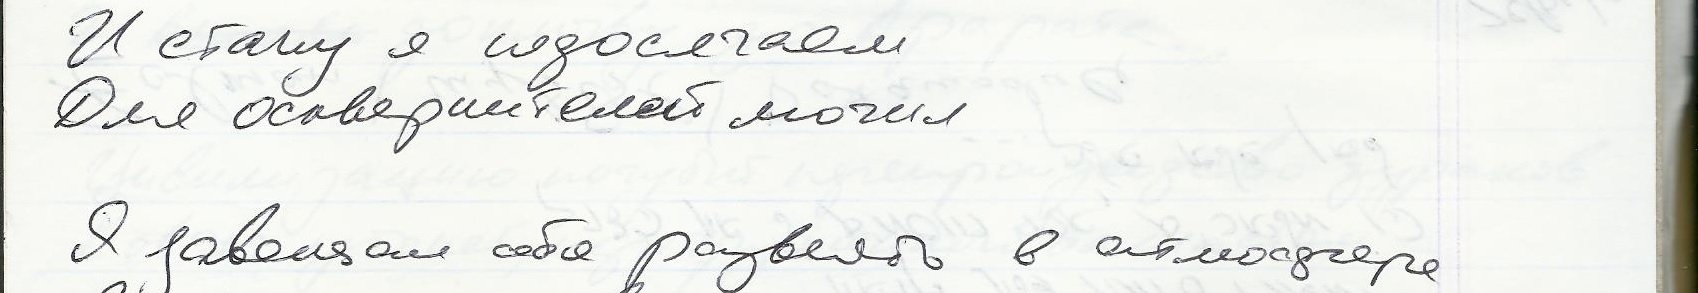 И стану я недосягаем
Для осквернителей могил
Я завещаю себя развеять в атмосфере